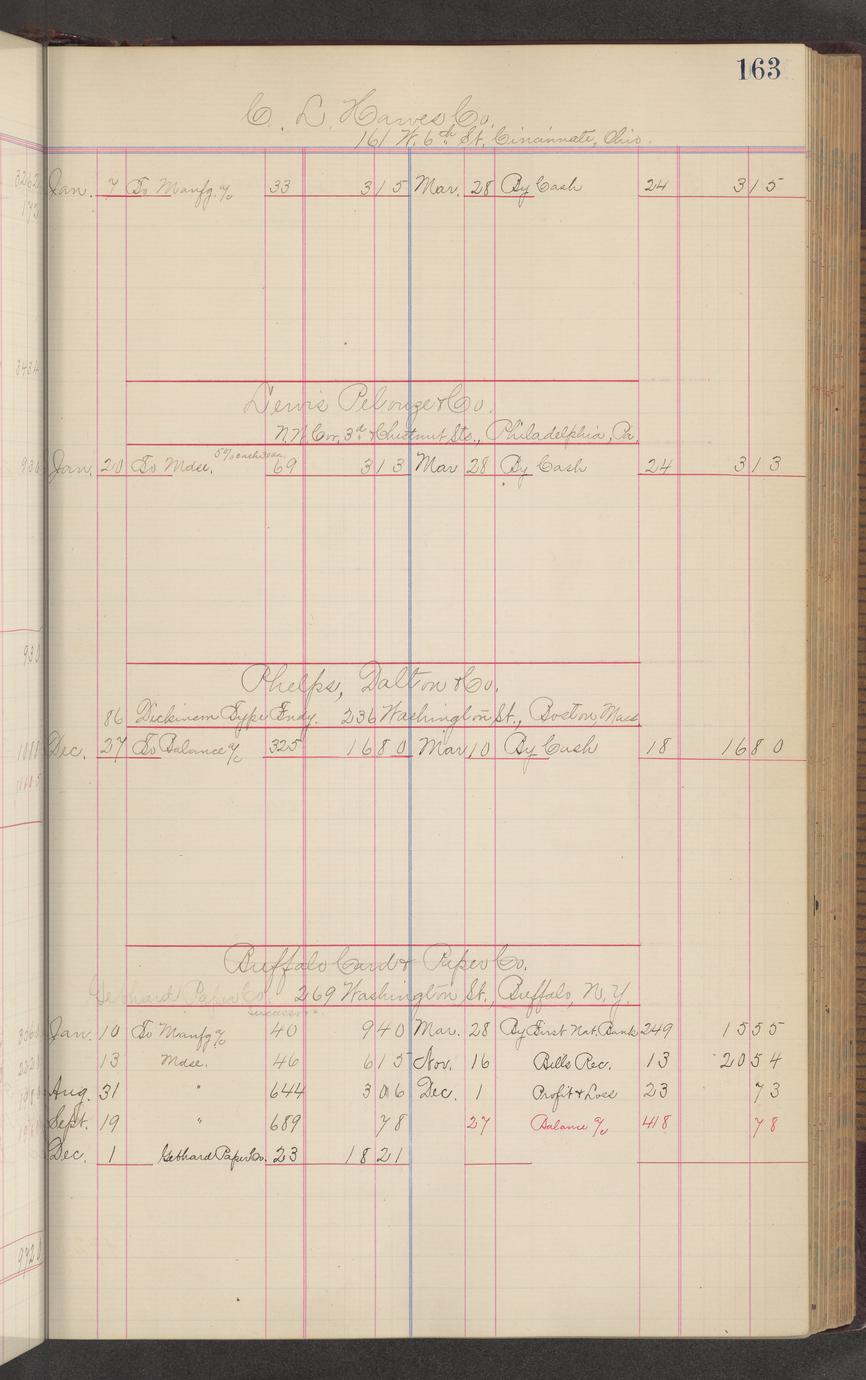 163
C. L. Hawes Co.
161 W. 6th St. Cincinnate, Ohio.
Jan. 7 To Manfg. a/c 33 3 15 Mar. 28 By Cash 24 3 15
Lewis Pelouze & Co.
N.W. Cor. 3d & Chestnut Sts., Philadelphia, Pa.
Jan. 20 To Mdse. 5% cash 69 3 13 Mar 28 By Cash 24 3 13
Phelps, Dalton & Co.
86 Dickinson Type Fndy. 236 Washington St., Boston, Mass
Dec. 27 To Balance a/c 325 16 80 Mar 10 By Cash 18 16 80
Buffalo Card & Paper Co.
Gebhard Paper Co. 269 Washington St., Buffalo, N.Y.
Successors
Jan. 10 To Manfg a/c 40 9 40 Mar. 28 By First Nat. Bank 249 15 55
13 Mdse. 46 6 15 Nov. 16 Bills Rec. 13 20 54
Aug. 31 " 644 3 06 Dec. 1 Profit & Loss 23 73
Sept. 19 " 689 78 27 Balance a/c 418 78
Dec. 1 Gebhard Paper Co. 23 18 21